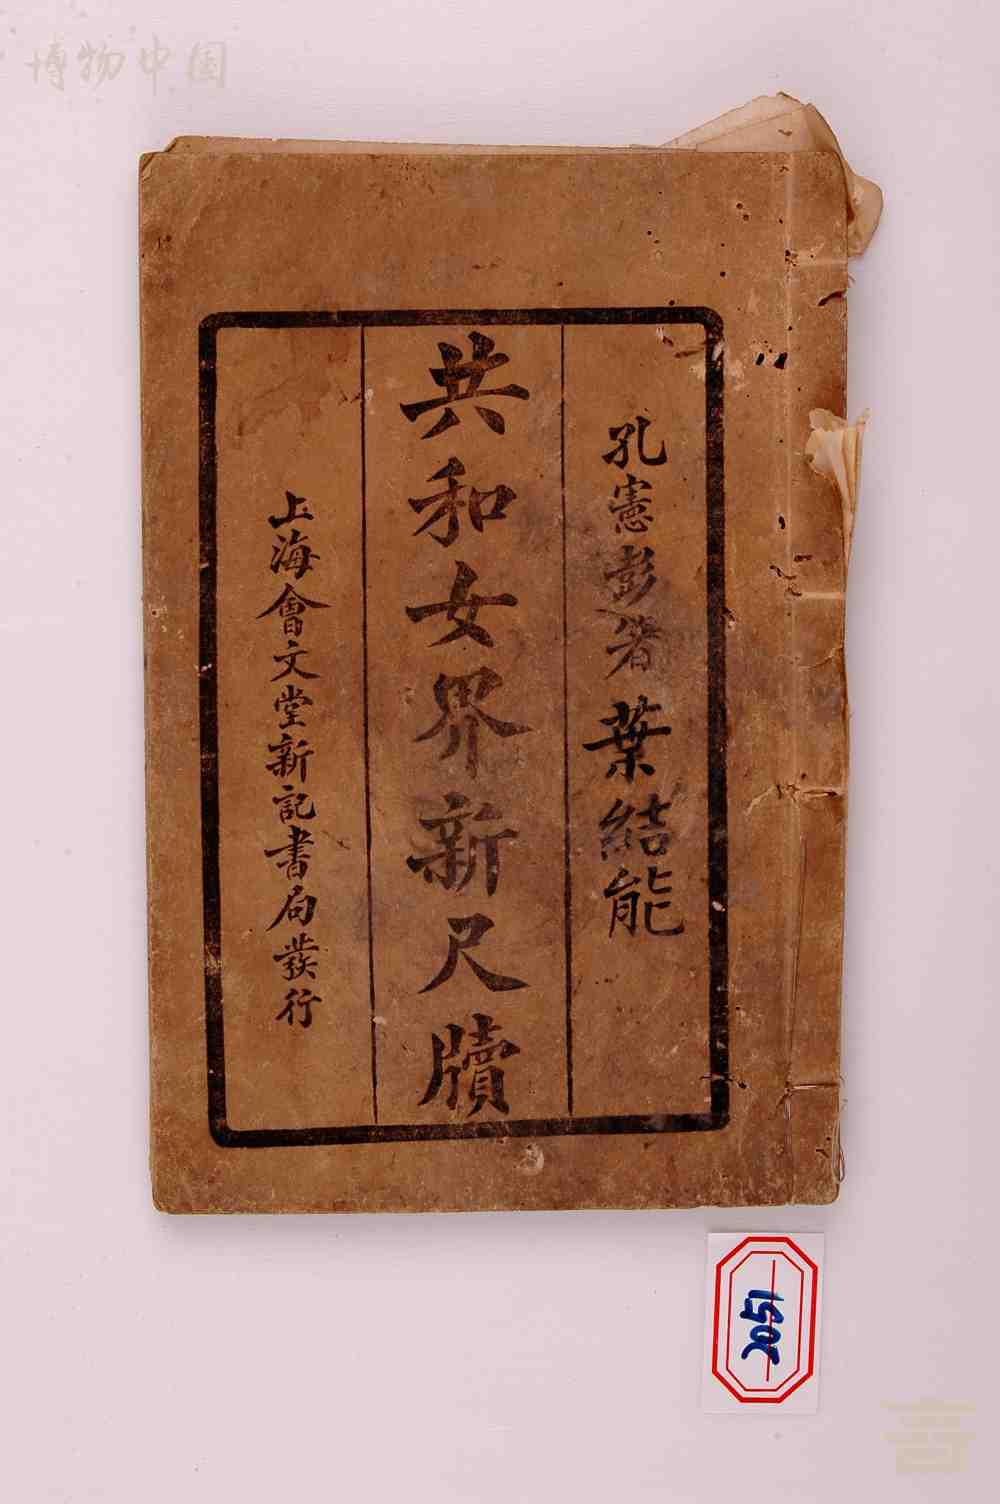 博物中国
孔憲彭著 葉結能
共和女界新尺牘
上海會文堂新記書局發行
2051